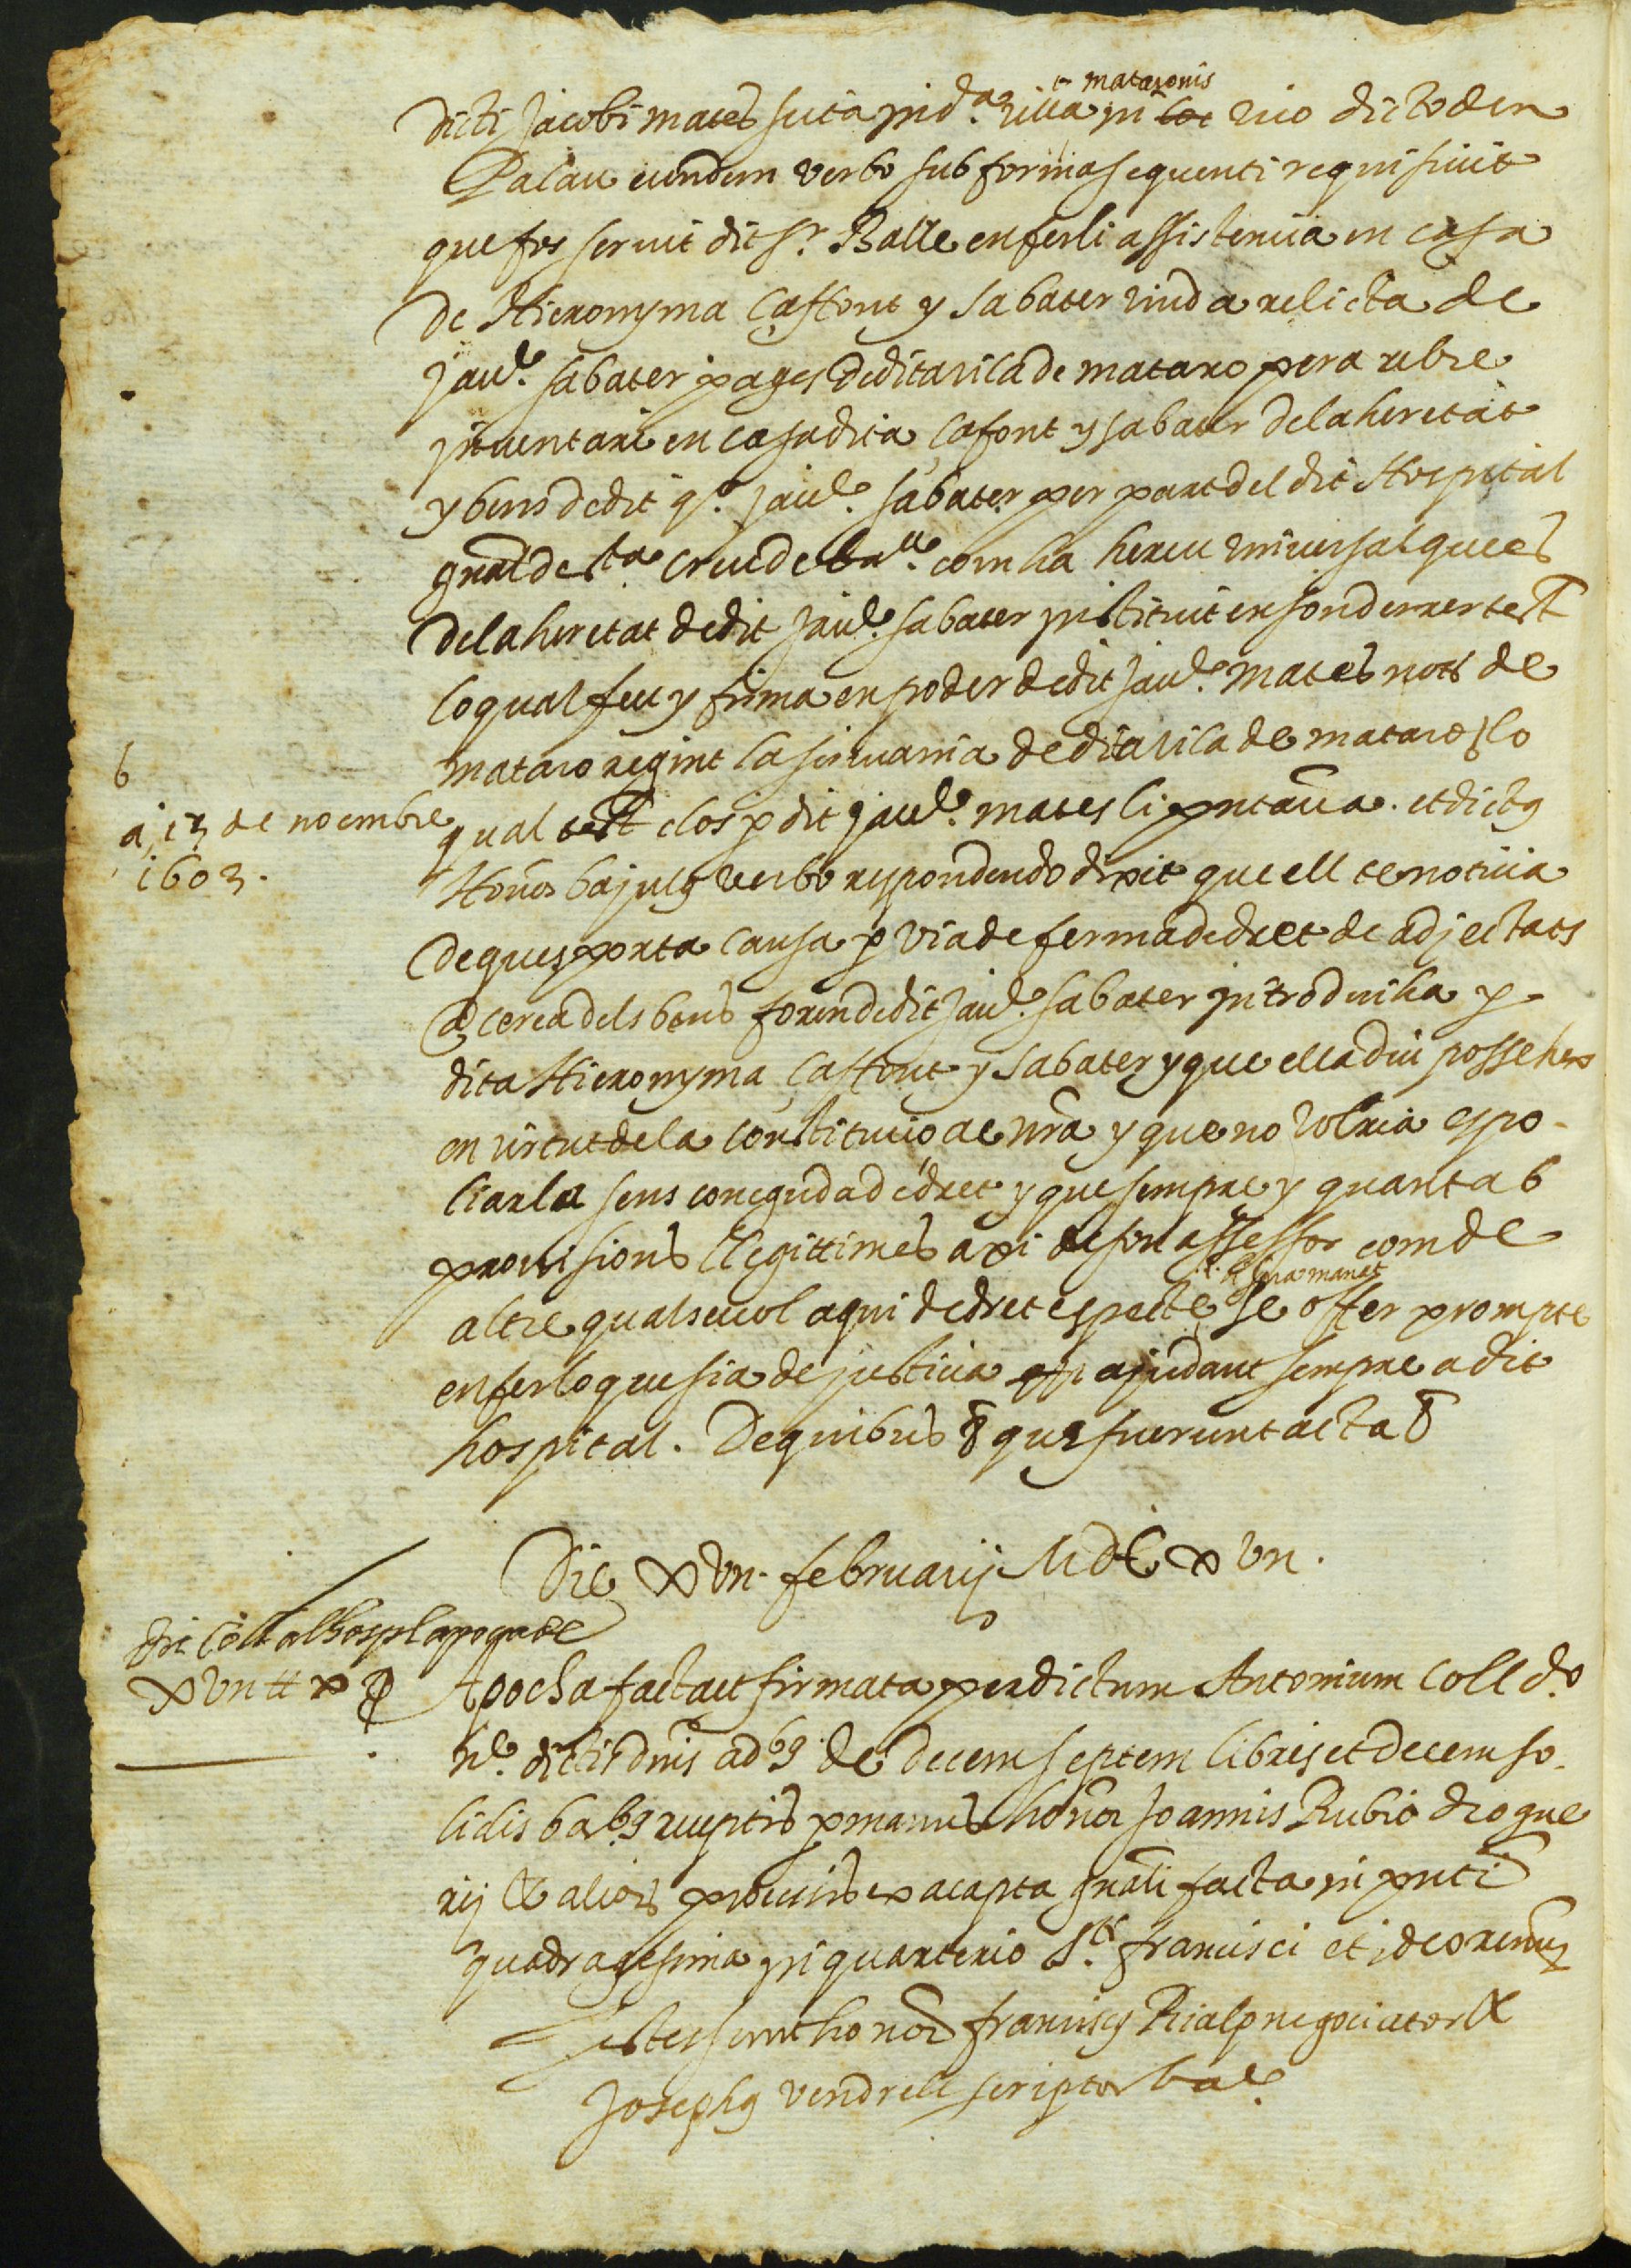 Mataronis
dicti Jacobi Mates sita in d.a villa in loc vico dicto den
Palau eundem verbo sub forma sequenti requisiuit
que fos seruit dit Sr. Balle en ferli assistentia en casa
de Hieronyma Çaffont y Sabater viuda relicta de
Jau.e Sabater pages de dita vila de Mataro pera rebre
inventari en casa dita Çafont y Sabater de la heretat
y bens de dit q.o Jau.e Sabater per part del dit Hospital
gnal de Sta Creu de Bar.a com ha hereu universal que es
de la heretat de dit Jau.e Sabater instituit en son derrer test
lo qual feu y firma en poder de dit Jau.e Mates not de
Mataro regint la scriuania de dita vila de Mataro lo
qual test clos p dit Jau.e Mates li pntaua. et dictus
Honor bajulus verbo respondendo dixit que ell te noticia
de ques porta causa p via de ferma de dret de adjectats
a cerca dels bens foren de dit Jau.e Sabater introduida p
dita Hieronyma Çaffont y Sabater y que ella diu possehex
en virtut de la constitucio de nra y que no volria espo-
liarla sens coneguda de dret y que sempre y quant ab
provisions llegittimes axi de son assessor com de
altre qualseuol aqui de dret especte se offer prompte
li sera manat
en fer lo que sia de justicia ajudant sempre a dit
hospital. De quibus & que fuerunt acta &
6
a 13 de noembre
1603.
Die xvii. februarij MDCxvii.
Dit Coll al hospl apoqua de
xvii tt x ß
Apocha facta et firmata per dictum Antonium Coll d.o
n.e dictis dnis adb9 de decem septem libris et decem so-
lidis barb9 receptis p manus honor Joannis Rubio drogue
rij & alior procuris ex acapta gnali facta in pnti
quadragesima in quarterio Sti francisci et ideo renuns
Testes sunt honor franciscus Rialp negociator &
Josephus Vendrell scriptor bar.e